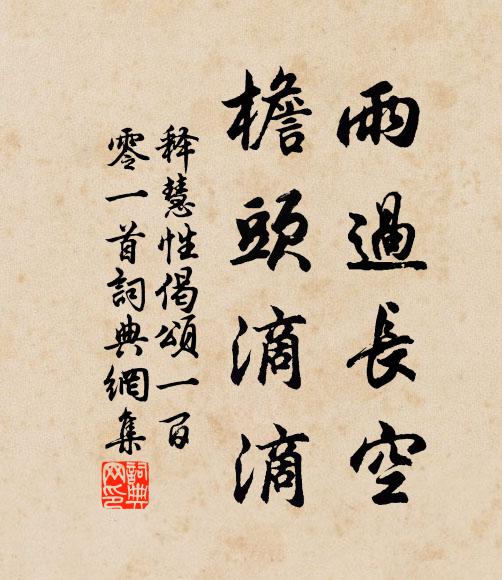 雨過長空
檐頭滴滴
釋慧性偈頌一百
零一首詞典網集
詞典网印